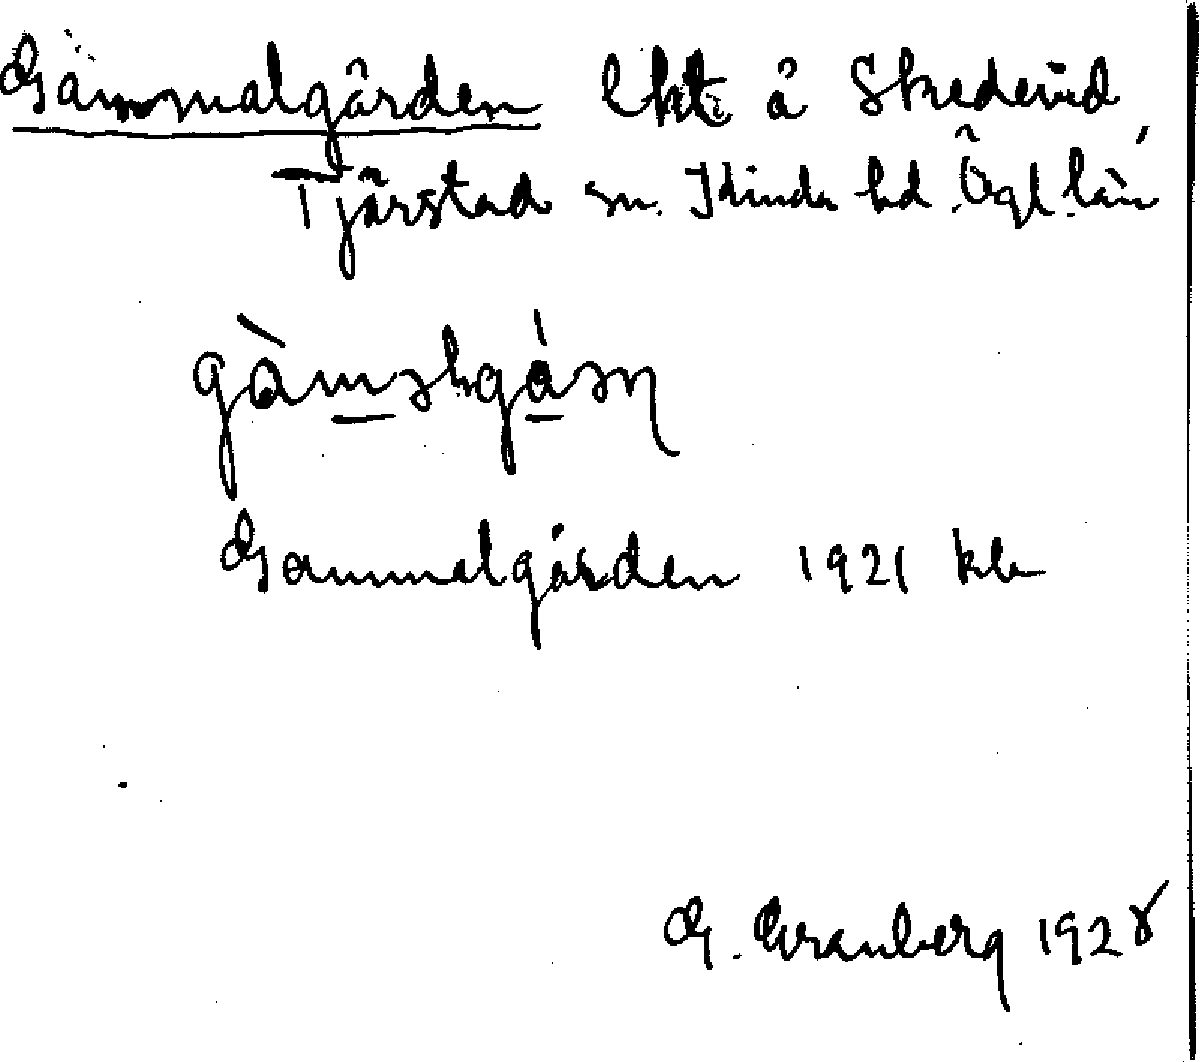 Gammalgården lht å Skedevid
Tjärstad sn. Kinda hd Ögl. län
Gammalgården 1921 kb
G. Granberg 1928